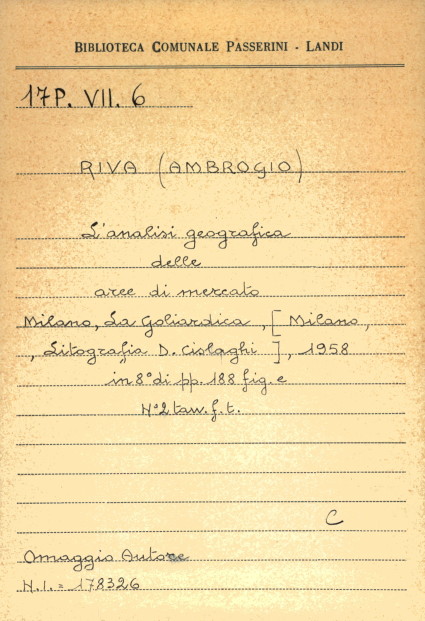 BIBLIOTECA COMUNALE PASSERINI - LANDI
17P. VII. 6
RIVA (AMBROGIO)
L'analisi geografica
delle
aree di mercato
Milano, La Goliardica, [Milano,
, Litografia D. Cislaghi], 1958
in 8° di pp. 188 fig. e
N° 2 tav. f. t.
C
Omaggio Autore
N.I. = 178326